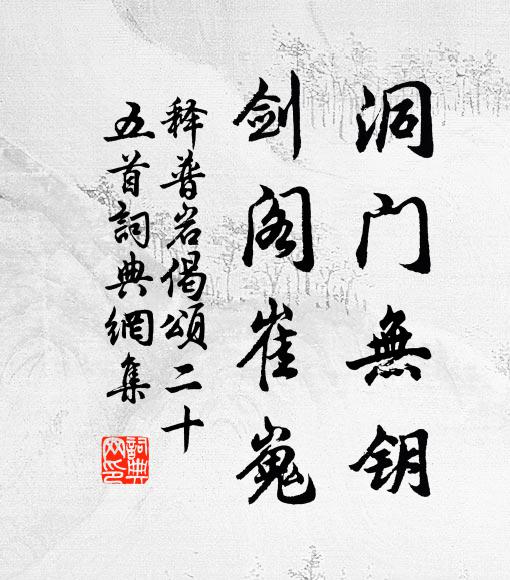 洞门無钥
剑阁崔嵬
释普岩偈頌二十
五首詞典網集
詞典
网印